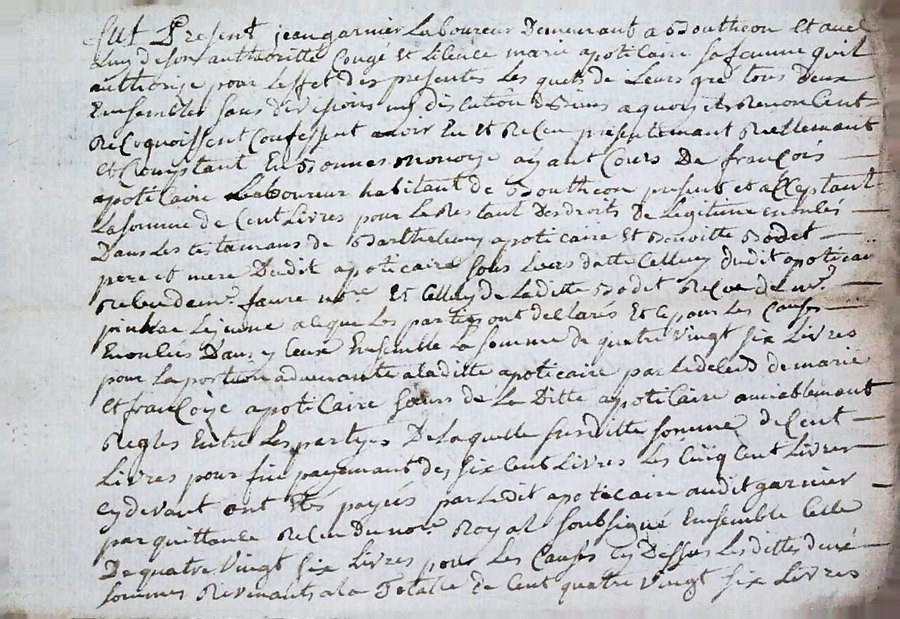 fut Present jean garnier Laboureur Demeurant a Boutheon Et avec
Luy de son authoritté Congé et Licence marie apoticaire sa femme quil
authorise pour Leffet des presentes Les quels de Leurs gré tous deux
Ensembles sans division ny discution de biens a quoy ils Renoncent
Recognoissent Confessent avoir Eu Et Receu presentemant Riellemant
et Comptant En Bonnes monoye ayant Cours De françois
apoticaire Laboureur habitant de Boutheon present et acceptant
La somme de Cent Livres pour Le Restant Des droits De Legitime enoncés
Dans Les testamans de Barthelemy apoticaire Et Benoitte Bodet
pere et mere Dudit apoticaire sous Leurs datte Celluy dudit apoticaire
Receu de mr. faure nore. Et Celluy de Laditte Bodet Receu de mr.
Lejeune a ce que Les parties ont declarés Et ce pour Les Causes
Enoncées Dans y Ceux Ensemble La somme de quatre vingt six Livres
pour La portion advenante a laditte apoticaire par Le deceds de marie
et françoise apoticaire sœurs de La Ditte apoticaire amiablemant
Reglés Entre Les partyes De Laquelle susditte somme de Cent
Livres pour fin payemant de six Cent Livres Les Cinq Cent Livres
cy devant ont Etés payées par Ledit apoticaire audit garnier
par quittance Receu du nore. Royal soubsigné Ensemble Celle
De quatre vingt six Livres pour Les Causes cy Dessus Lesdittes deux
sommes Revenants a la Totalle de Cent quatre vingt six Livres